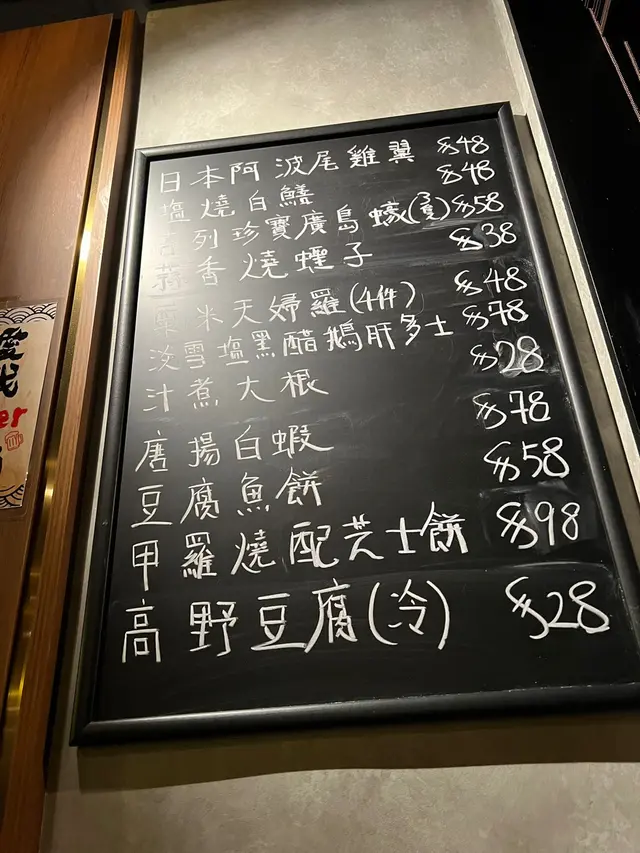 日本阿波尾雞翼 $48
塩燒白鱔 $48
吉列珍寶廣島蠔(3隻) $58
蒜香燒蟶子 $38
粟米天婦羅(4件) $48
淡雪塩黑醋鵝肝多士 $78
汁煮大根 $28
唐揚白蝦 $78
豆腐魚餅 $58
甲羅燒配芝士餅 $98
高野豆腐(冷) $28